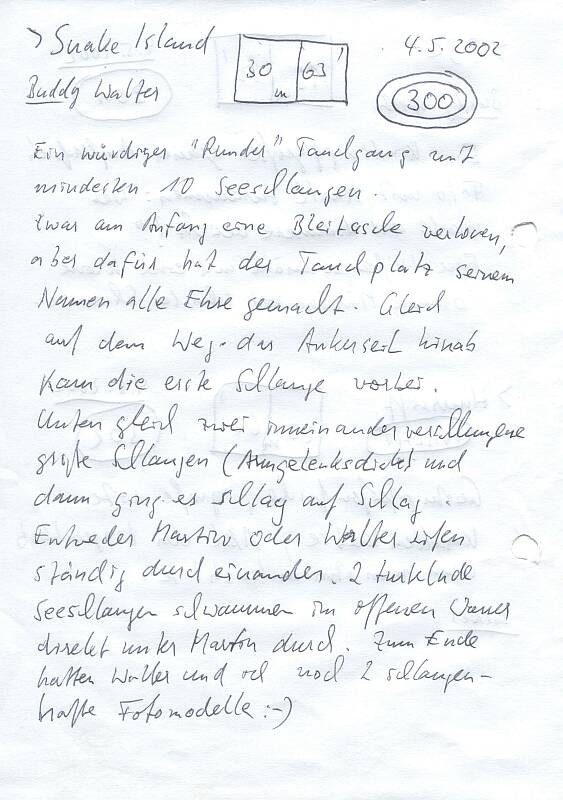 > Snake Island
30 m 63'
4.5.2002
Buddy Walter
300
Ein würdiger "Runder" Tauchgang mit
mindesten 10 Seeschlangen.
Zwar am Anfang eine Bleitasche verloren,
aber dafür hat der Tauchplatz seinem
Namen alle Ehre gemacht. Gleich
auf dem Weg das Ankerseil hinab
kam die erste Schlange vorbei.
Unten gleich zwei ineinander verschlungene
große Schlangen (Armgelenksdick) und
dann ging es schlag auf Schlag.
Entweder Martin oder Walter riefen
ständig durcheinander. 2 turtelnde
Seeschlangen schwammen im offenen Wasser
direkt unter Martin durch. Zum Ende
hatten Walter und ich noch 2 schlangen-
hafte Fotomodelle :-)